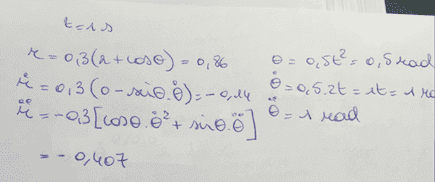 t=1 s
r = 0,3(2+cosθ) = 0,86
θ = 0,5t² = 0,5 rad
ṙ = 0,3(0-sinθ.θ̇) = -0,14
θ̇ = 0,5.2t = 1t = 1 ra
r̈ = -0,3[cosθ.θ̇² + sinθ.θ̈]
θ̈ = 1 rad
= - 0,407